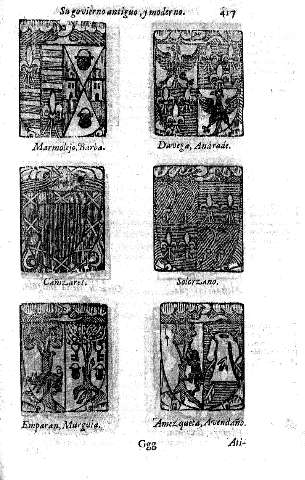 Su govierno antiguo, y moderno. 417
Marmolejo, Barba.
Davega, Andrade.
Canizares.
Solorzano.
Emparan, Murguia.
Amezqueta, Avendaño.
Ggg Ati-